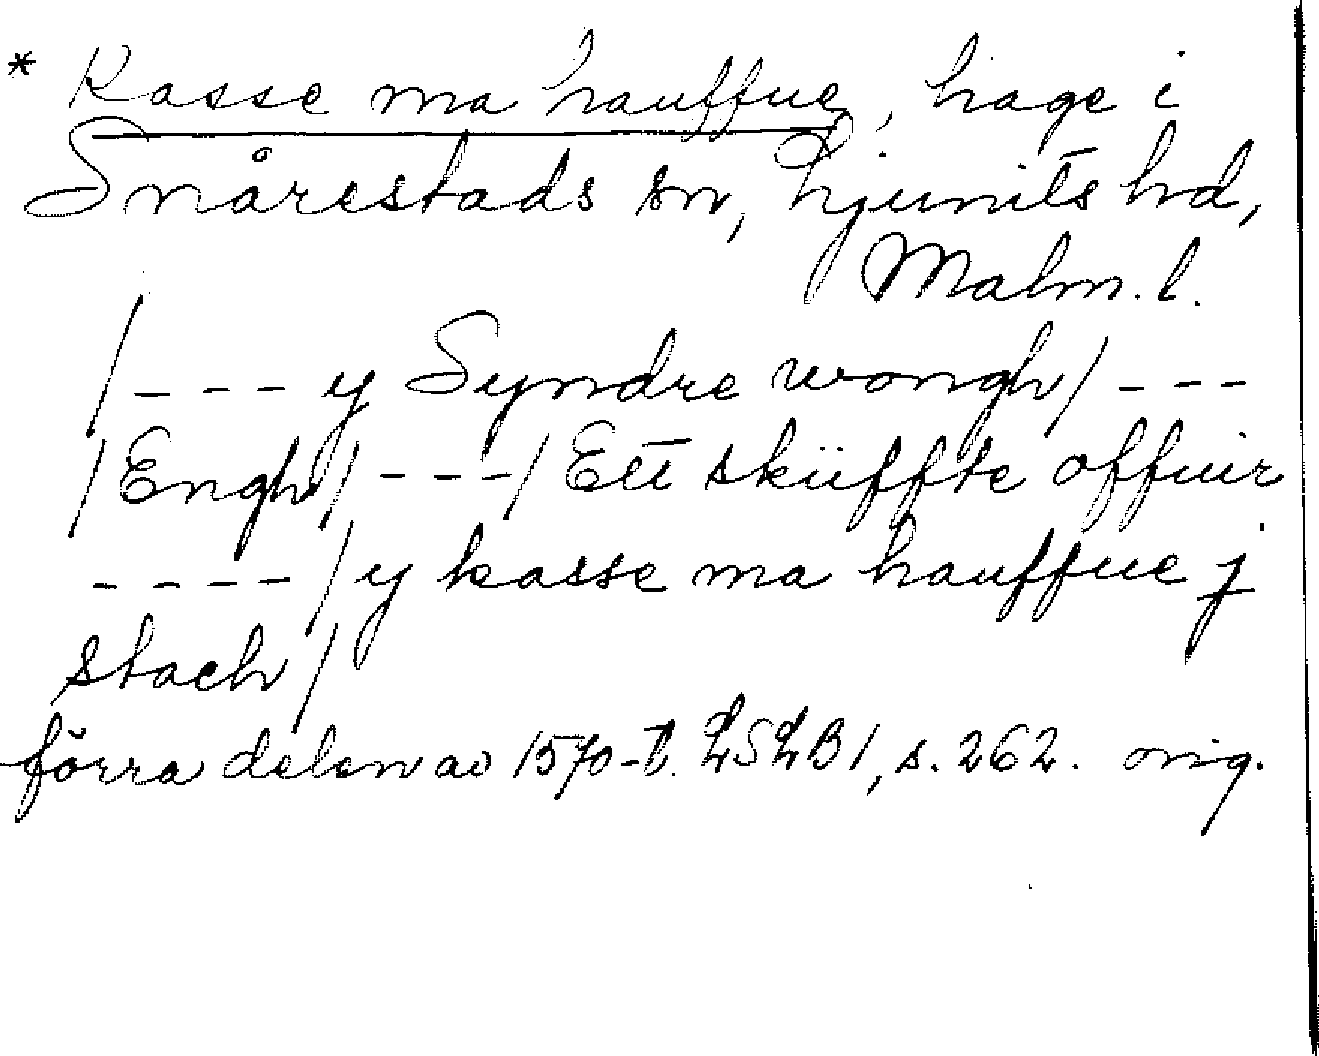 * Kasse ma hauffue, hage i
Snårestads sn, Ljunits hd,
Malm. l.
/ - - - y Syndre wongh/ - - -
/Engh/ - - - / Ett skiüffte offuir
- - - - / y kasse ma hauffue j
stach /
förra delen av 1570-t. LSLB1, s. 262. orig.